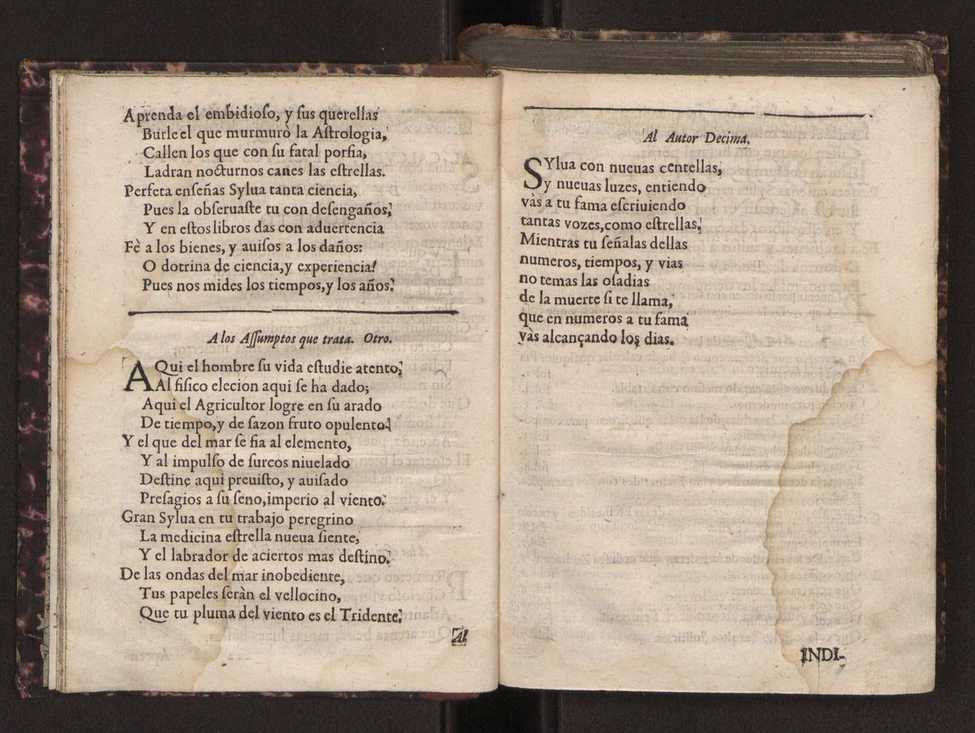 Aprenda el embidioſo, y ſus querellas
Burle el que murmurò la Aſtrologia,
Callen los que con ſu fatal porfia,
Ladran nocturnos canes las eſtrellas.
Perfeta enſeñas Sylua tanta ciencia,
Pues la obſeruaſte tu con deſengaños,
Y en eſtos libros das con aduertencia
Fè a los bienes, y auiſos a los daños:
O dotrina de ciencia, y experiencia!
Pues nos mides los tiempos, y los años.
A los Aſſumptos que trata. Otro.
AQui el hombre ſu vida eſtudie atento,
Al fiſico elecion aqui ſe ha dado;
Aqui el Agricultor logre en ſu arado
De tiempo, y de ſazon fruto opulento.
Y el que del mar ſe fia al elemento,
Y al impulſo de ſurcos niuelado
Deſtine aqui preuiſto, y auiſado
Preſagios a ſu ſeno, imperio al viento.
Gran Sylua en tu trabajo peregrino
La medicina eſtrella nueua ſiente,
Y el labrador de aciertos mas deſtino.
De las ondas del mar inobediente,
Tus papeles ſeràn el vellocino,
Que tu pluma del viento es el Tridente.
Al
Al Autor Decima.
SYlua con nueuas centellas,
y nueuas luzes, entiendo
vàs a tu fama eſcriuiendo
tantas vozes, como eſtrellas.
Mientras tu ſeñalas dellas
numeros, tiempos, y vias
no temas las oſadias
de la muerte ſi te llama,
que en numeros a tu fama
vàs alcançando los dias.
INDI-